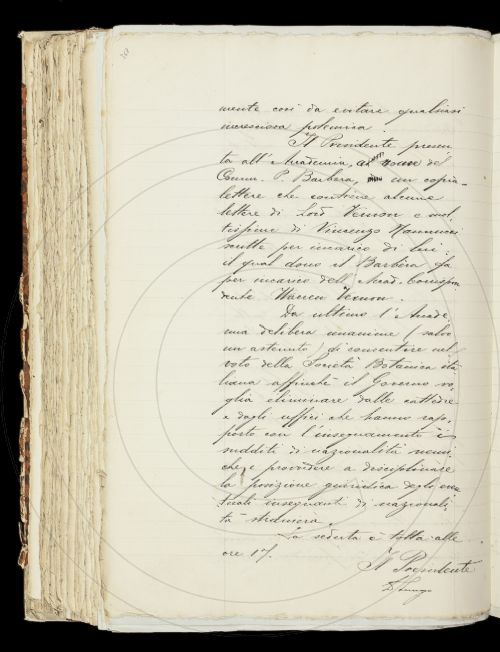 mente così da evitare qualsiasi
incresciosa polemica.
Il Presidente presen-
ta all'Accademia, a nome del
Comm. P. Barbèra, un copia-
lettere che contiene alcune
lettere di Lord Vernon e mol-
tissime di Vincenzo Nannucci
scritte per incarico di lui;
il qual dono il Barbèra fa
per incarico dell'Accad. corrispon
dente Warren Vernon.
Da ultimo l'Accade
mia delibera unanime (salvo
un astenuto) di consentire nel
voto della Società Botanica ita
liana affinchè il Governo vo
glia eliminare dalle cattedre
e dagli uffici che hanno rap
porto con l'insegnamento i
sudditi di nazionalità nemi
che, e provvedere a disciplinare
la posizione giuridica degli even
tuali insegnanti di nazionali
tà straniera.
La seduta è tolta alle
ore 17.
Il Presidente